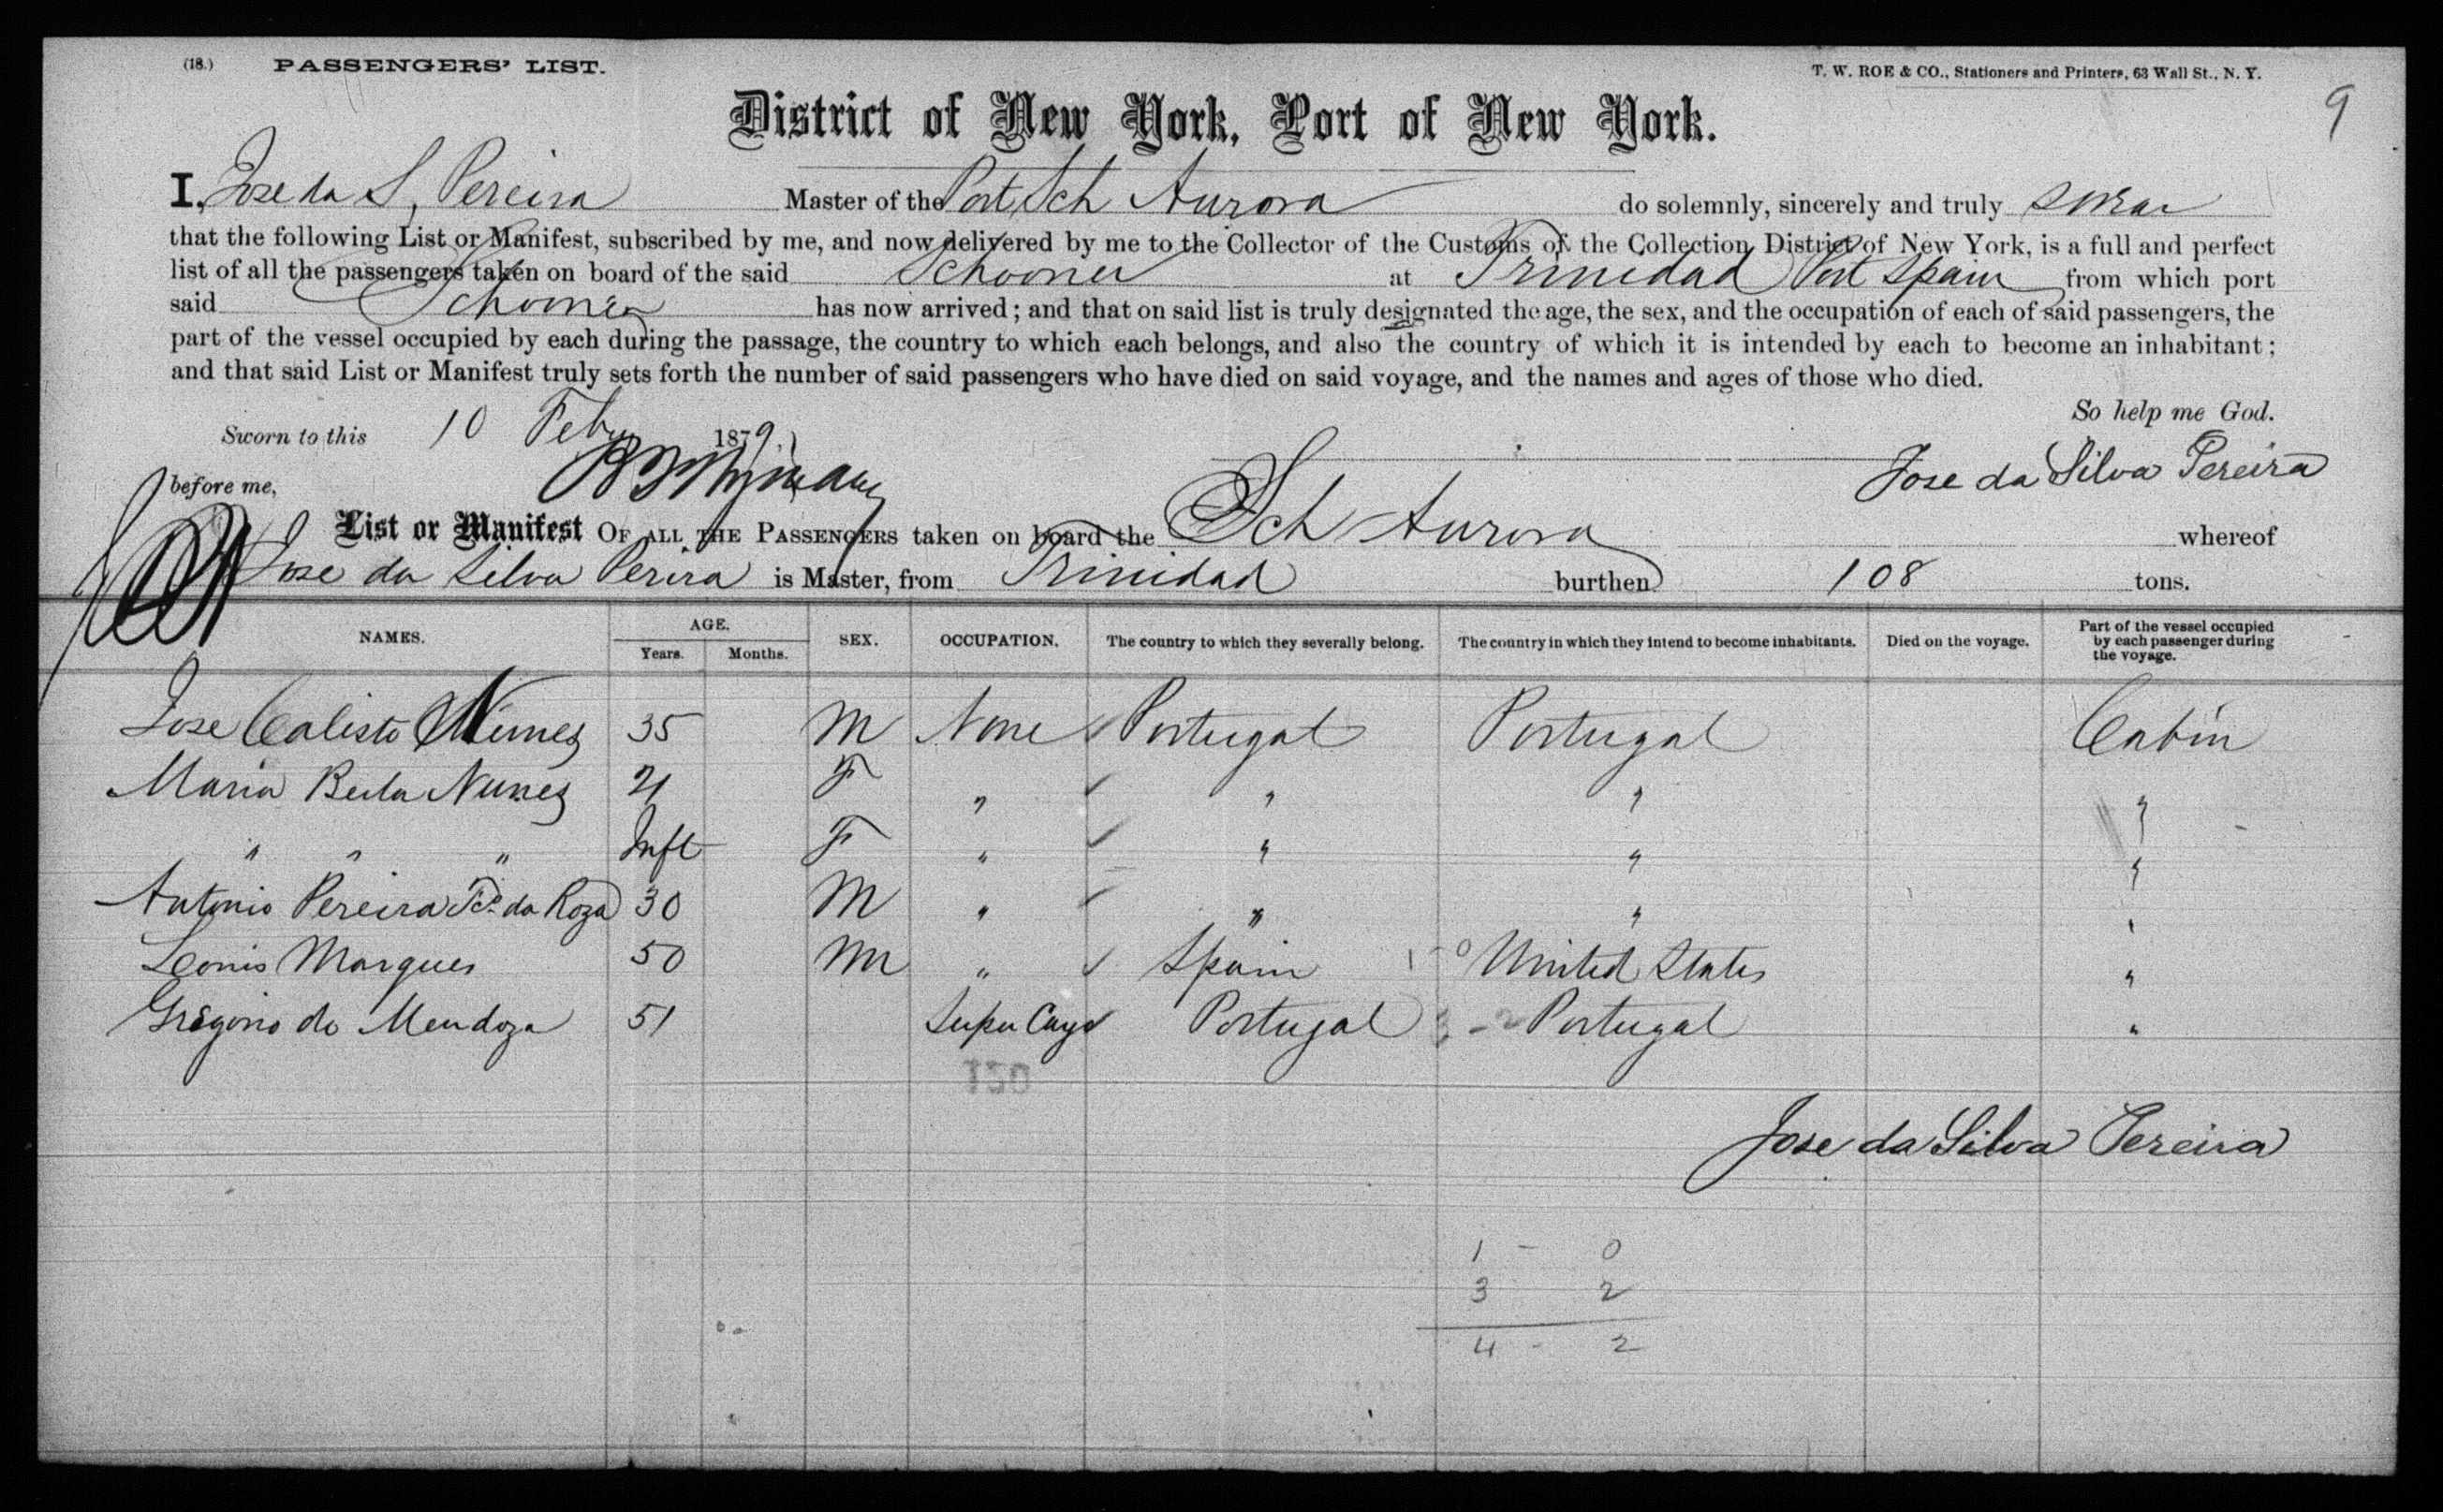 (18.) PASSENGERS' LIST. T. W. ROE & CO., Stationers and Printers, 63 Wall St., N. Y.
9
District of New York, Port of New York.
I, Jose da S. Pereira Master of the Port Sch Aurora do solemnly, sincerely and truly swear
that the following List or Manifest, subscribed by me, and now delivered by me to the Collector of the Customs of the Collection District of New York, is a full and perfect
list of all the passengers taken on board of the said Schooner at Trinidad Port Spain from which port
said Schooner has now arrived; and that on said list is truly designated the age, the sex, and the occupation of each of said passengers, the
part of the vessel occupied by each during the passage, the country to which each belongs, and also the country of which it is intended by each to become an inhabitant;
and that said List or Manifest truly sets forth the number of said passengers who have died on said voyage, and the names and ages of those who died.
So help me God.
Sworn to this 10 Feby 1879.
before me, Jose da Silva Pereira
List or Manifest OF ALL THE PASSENGERS taken on board the Sch Aurora whereof
Jose da Silva Perira is Master, from Trinidad burthen 108 tons.
NAMES. AGE. Years. Months. SEX. OCCUPATION. The country to which they severally belong. The country in which they intend to become inhabitants. Died on the voyage. Part of the vessel occupied by each passenger during the voyage.
Jose Calisto Nunes 35 M None Portugal Portugal Cabin
Maria Nunes 21 F " " " "
" " " Inft F " " " "
Antonio Pereira da Roza 30 M " " " "
Marques 50 M " Spain 1-0 United States "
Gregorio de Mendoza 51 Portugal 3-2 Portugal "
120
Jose da Silva Pereira
1 - 0
3 2
4 - 2